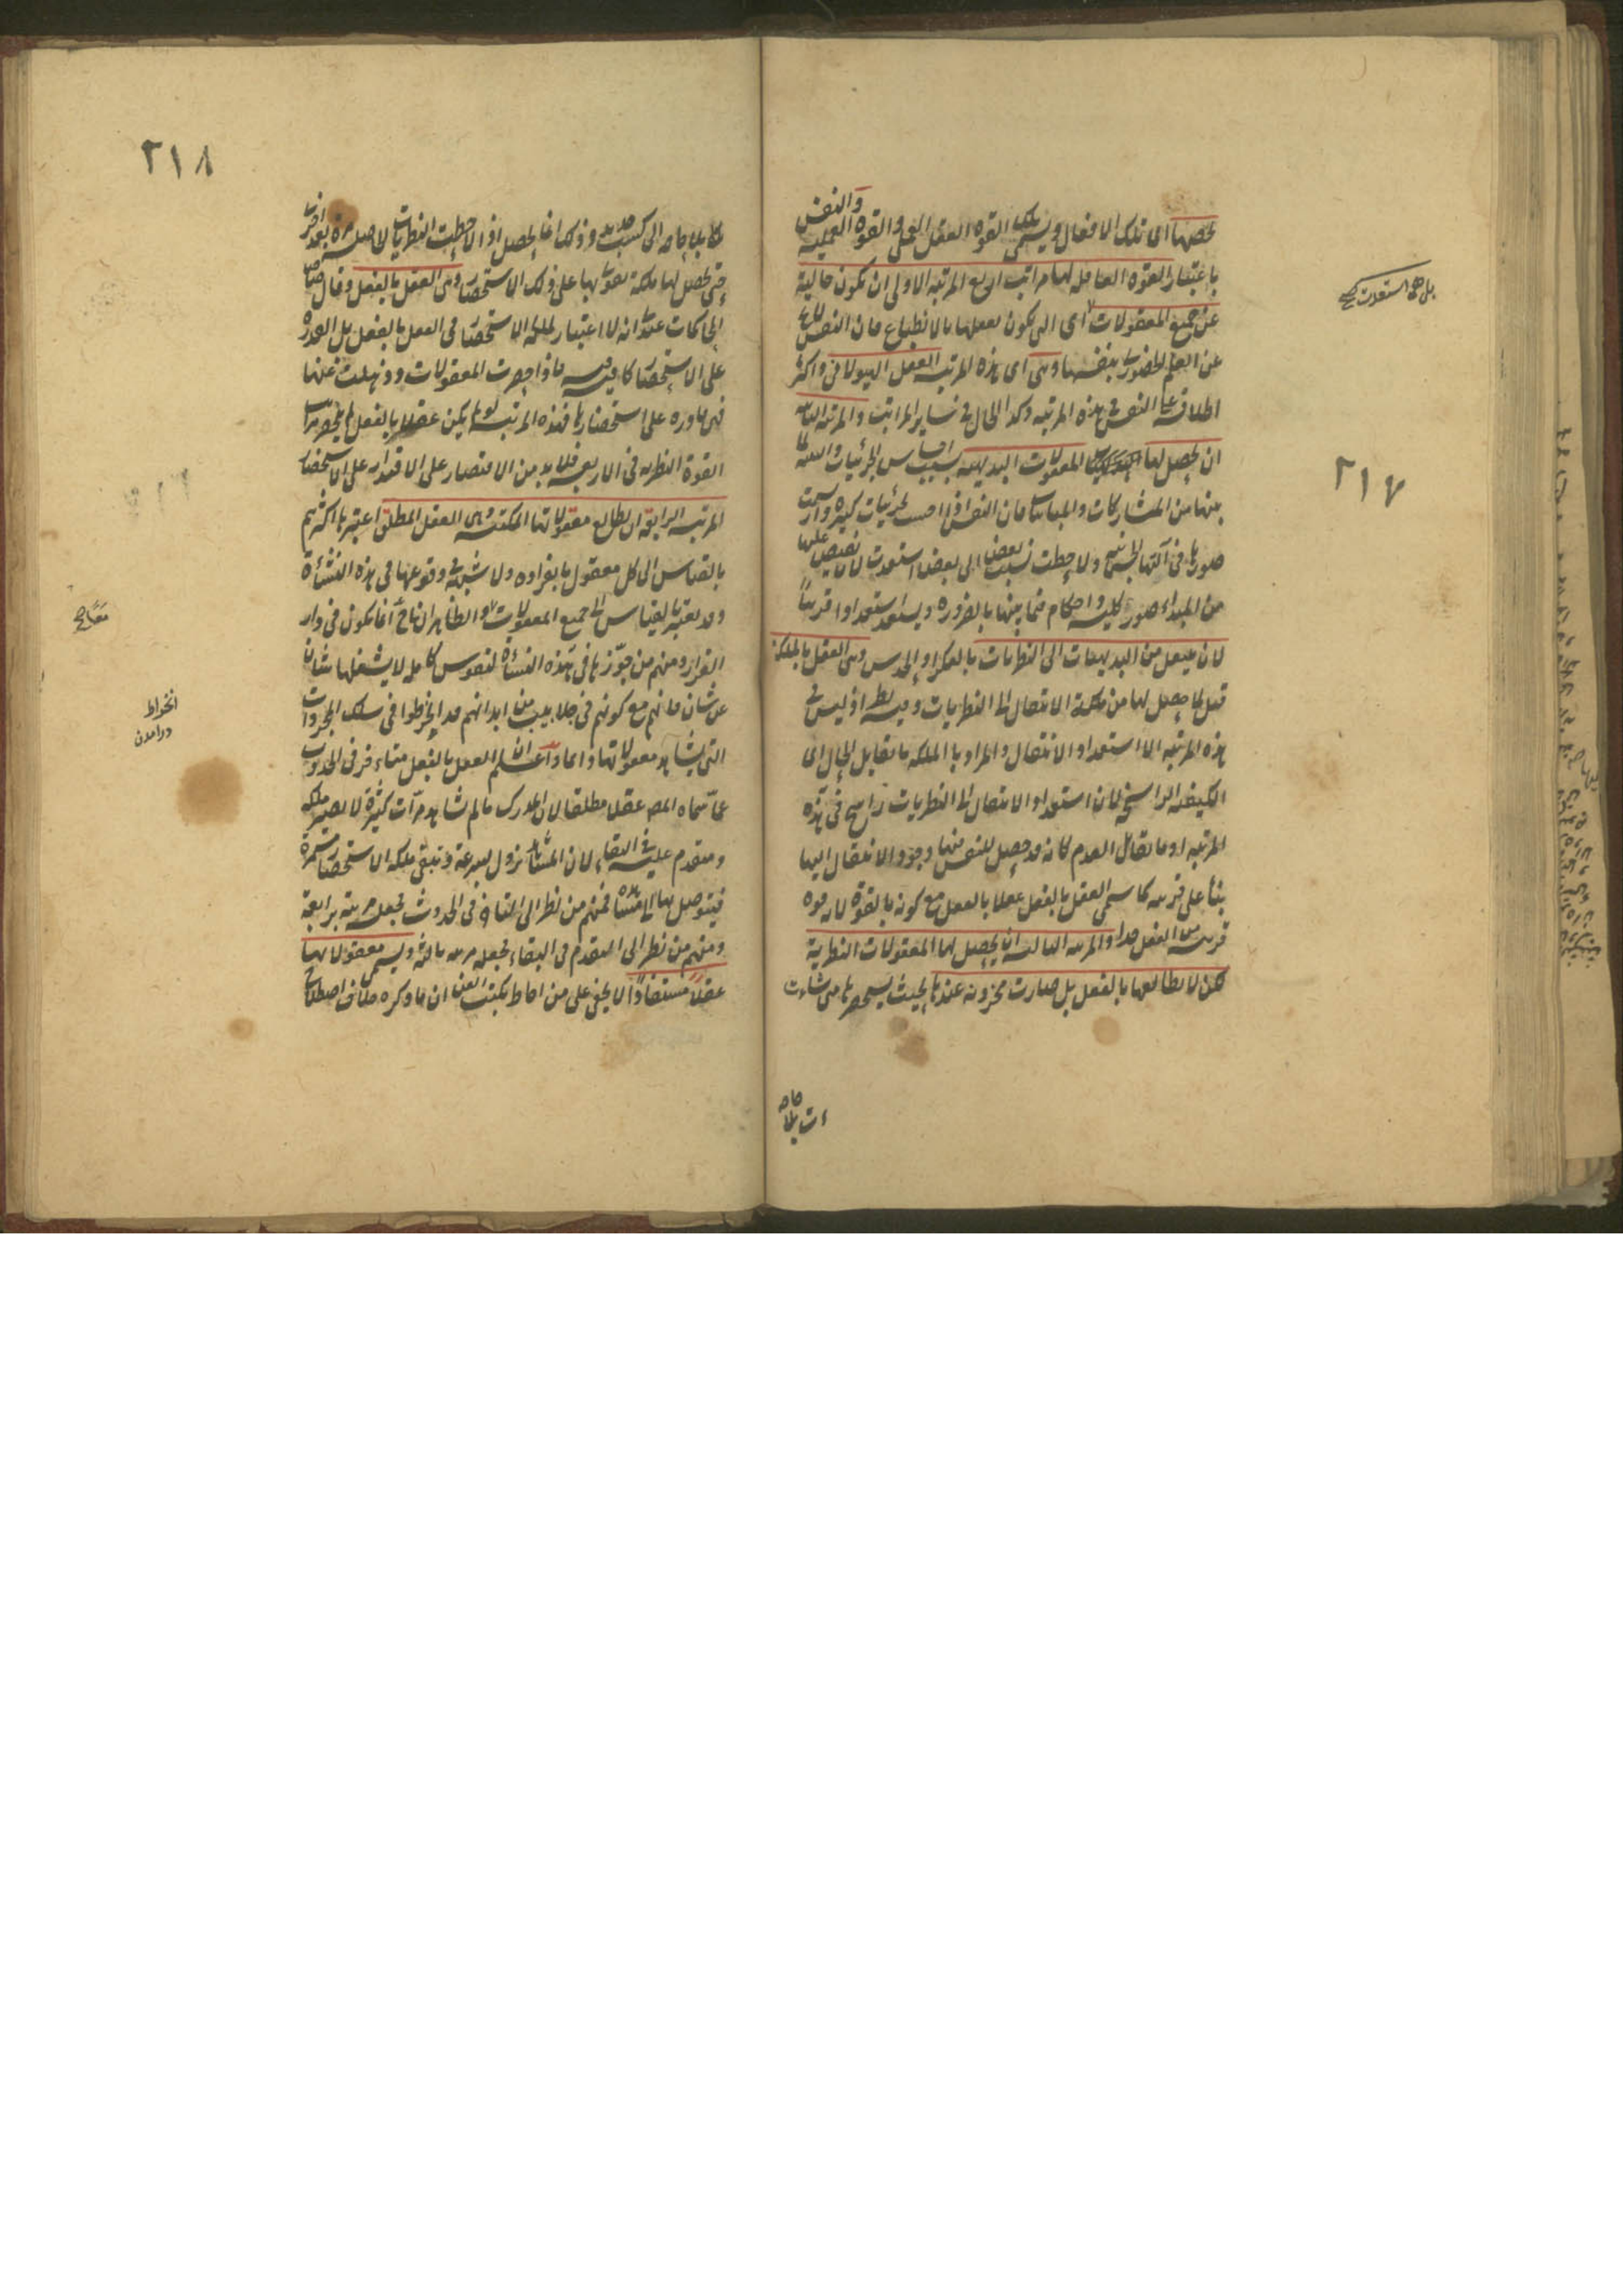 تخصها اى تلك الافعال ويسمى تلك القوة العقل العملى والقوة العملية والنفس
باعتبار القوة العاقلة لها مراتب اربع المرتبة الاولى ان تكون خالية
عن جميع المعقولات اى التى يكون تعقلها بالانطباع فان النفس لا
عن العلم الحضورى بنفسها وهى اى هذه المرتبة العقل الهيولانى واكثر
اطلاقه على النفس فى هذه المرتبة وكذا الحال فى سائر المراتب والمرتبة الثانية
ان يحصل لها المعقولات البديهية بسبب احساس الجزئيات والتنبه لما
بينها من المشاركات والمباينات فان النفس اذا احست بجزئيات كثيرة وارتسمت
صورها فى آلتها الجسمانية ولاحظت نسبة بعضها الى بعض استعدت لان يفيض عليها
من المبداء صور كلية واحكام فيما بينها بالضرورة ويستعد استعدادا قريبا
لان ينتقل من البديهيات الى النظريات بالفكر او الحدس وهى العقل بالملكة
قيل لما حصل لها من ملكة الانتقال الى النظريات وفيه نظر اذ ليس فى
هذه المرتبة الا استعداد الانتقال والمراد بالملكة ما يقابل الحال اى
الكيفية الراسخة لان استعداد الانتقال الى النظريات راسخ فى هذه
المرتبة او ما يقابل العدم كانه قد حصل للنفس فيها وجود الانتقال اليها
بناء على قربه كما سمى العقل بالفعل عقلا بالفعل مع كونه بالقوة لانه قوة
قريبة من الفعل جدا والمرتبة الثالثة ان يحصل لها المعقولات النظرية
لكن لا يطالعها بالفعل بل صارت مخزونة عندها بحيث يستحضرها متى شاءت
ءت بلا حاجة
بل هى استعدت
٢١٧
٢١٨
بلا حاجة الى كسب جديد وذلك انما يحصل اذا لاحظت النظريات الحاصلة مرة بعد اخرى
حتى يحصل لها ملكة تقوى بها على ذلك الاستحضار وهى العقل بالفعل وقال صاحب
المحاكمات عندى انه لا اعتبار لملكة الاستحضار فى العقل بالفعل بل القدرة
على الاستحضار كافية فيه فاذا احضرت المعقولات وذهلت عنها
فهى قادرة على استحضارها فهذه المرتبة لو لم يكن عقلا بالفعل لم ينحصر مراتب
القوة النظرية فى الاربع فلابد من الاقتصار على الاقتدار على الاستحضار
المرتبة الرابعة ان يطالع معقولاتها المكتسبة وهى العقل المطلق اعتبرها اكثرهم
بالقياس الى كل معقول بانفراده ولا شبهة فى وقوعها فى هذه النشأة
وقد يعتبر بالقياس الى جميع المعقولات والظاهر انها ح انما يكون فى دار
القرار ومنهم من جوزها فى هذه النشأة لنفوس كاملة لا يشغلها شان
عن شان فانهم مع كونهم فى جلابيب من ابدانهم قد انخرطوا فى سلك المجردات
التى يشاهد معقولاتها دائما واعلم ان العقل بالفعل متاخر فى الحدوث
عما سماه المصـ عقلا مطلقا لان المدرك ما لم يشاهد مرات كثيرة لا يصير ملكة
ومتقدم عليه فى البقاء لان المشاهدة تزول بسرعة وتبقى ملكة الاستحضار مستمرة
فيتوصل بها الى مشاهدة فمنهم من نظر الى التاخر فى الحدوث فجعله مرتبة رابعة
ومنهم من نظر الى التقدم فى البقاء فجعله مرتبة ثالثة ويسمى معقولاتها
عقلا مستفادا لا يخفى على من احاط بكتب الفن ان ما ذكره خلاف اصطلاح
انخراط
درآمدن